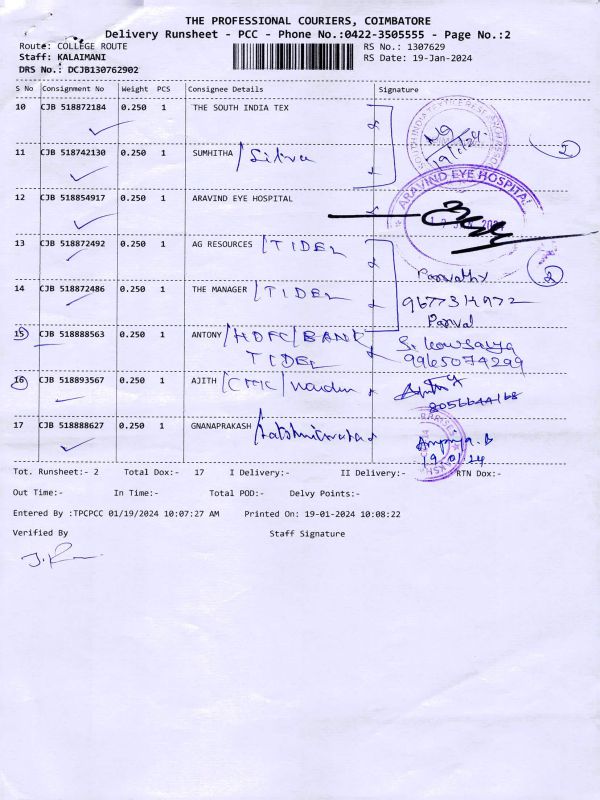 THE PROFESSIONAL COURIERS, COIMBATORE
Delivery Runsheet - PCC - Phone No.:0422-3505555 - Page No.:2
Route: COLLEGE ROUTE RS No.: 1307629
Staff: KALAIMANI RS Date: 19-Jan-2024
DRS No.: DCJB130762902
S No Consignment No Weight PCS Consignee Details Signature
10 CJB 518872184 0.250 1 THE SOUTH INDIA TEX
19/1/24
11 CJB 518742130 0.250 1 SUMHITHA / Sitra 2
ARAVIND EYE HOSPITAL
12 CJB 518854917 0.250 1 ARAVIND EYE HOSPITAL
13 CJB 518872492 0.250 1 AG RESOURCES / TIDEL
Parvathy 2
14 CJB 518872486 0.250 1 THE MANAGER / TIDEL
9677314972
15 CJB 518888563 0.250 1 ANTONY / HDFC / BANK
TIDEL 9965074299
16 CJB 518893567 0.250 1 AJITH
8056644168
17 CJB 518888627 0.250 1 GNANAPRAKASH
19/01/24
Tot. Runsheet:- 2 Total Dox:- 17 I Delivery:- II Delivery:- RTN Dox:-
Out Time:- In Time:- Total POD:- Delvy Points:-
Entered By :TPCPCC 01/19/2024 10:07:27 AM Printed On: 19-01-2024 10:08:22
Verified By Staff Signature